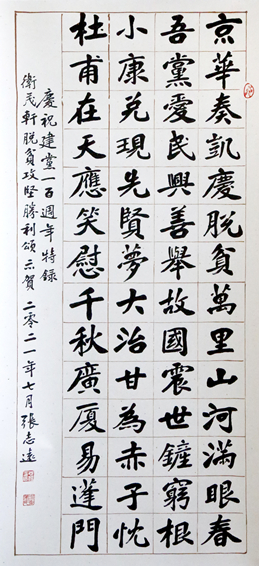 京華奏凱慶脫貧萬里山河滿眼春
吾黨愛民興善舉故國震世鏟窮根
小康兌現先賢夢大治甘為赤子忱
杜甫在天應笑慰千秋廣厦易蓬門
慶祝建黨一百週年特錄
衛茂軒脫貧攻堅勝利頌示賀二零二一年七月張志遠